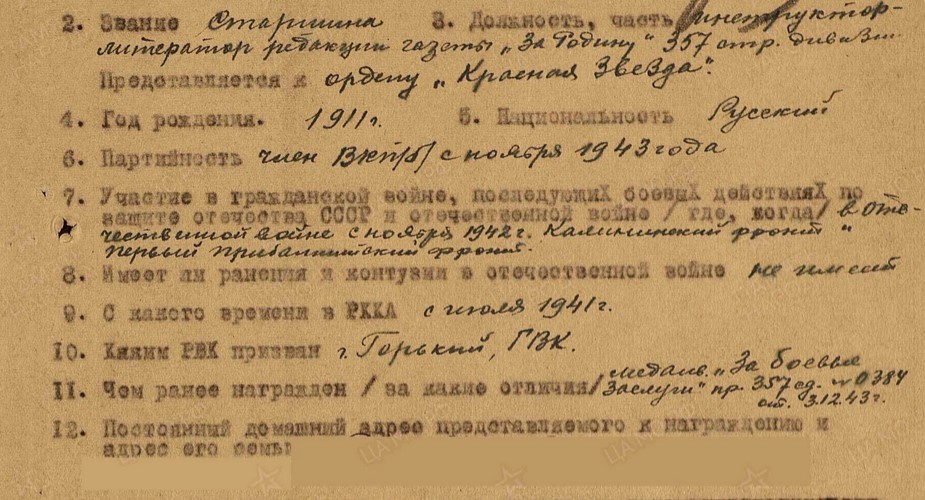 2. Звание Старшина 3. Должность, часть инструктор-
литератор редакции газеты „За Родину" 357 стр. дивизии
Представляется к ордену „Красная Звезда".
4. Год рождения. 1911 г. 5. Национальность Русский
6. Партийность член ВКП/б/ с ноября 1943 года
7. Участие в гражданской войне, последующих боевых действиях по
защите отечества СССР и отечественной войне /где, когда/ в оте-
чественной войне с ноября 1942 г. Калининский фронт
Первый Прибалтийский фронт.
8. Имеет ли ранения и контузии в отечественной войне не имеет
9. С какого времени в РККА с июля 1941 г.
10. Каким РВК призван г. Горький, ГВК.
11. Чем ранее награжден /за какие отличия/ медаль „За боевые
заслуги" пр. 357 сд. № 0384
от. 3.12.43 г.
12. Постоянный домашний адрес представляемого к награждению и
адрес его семьи